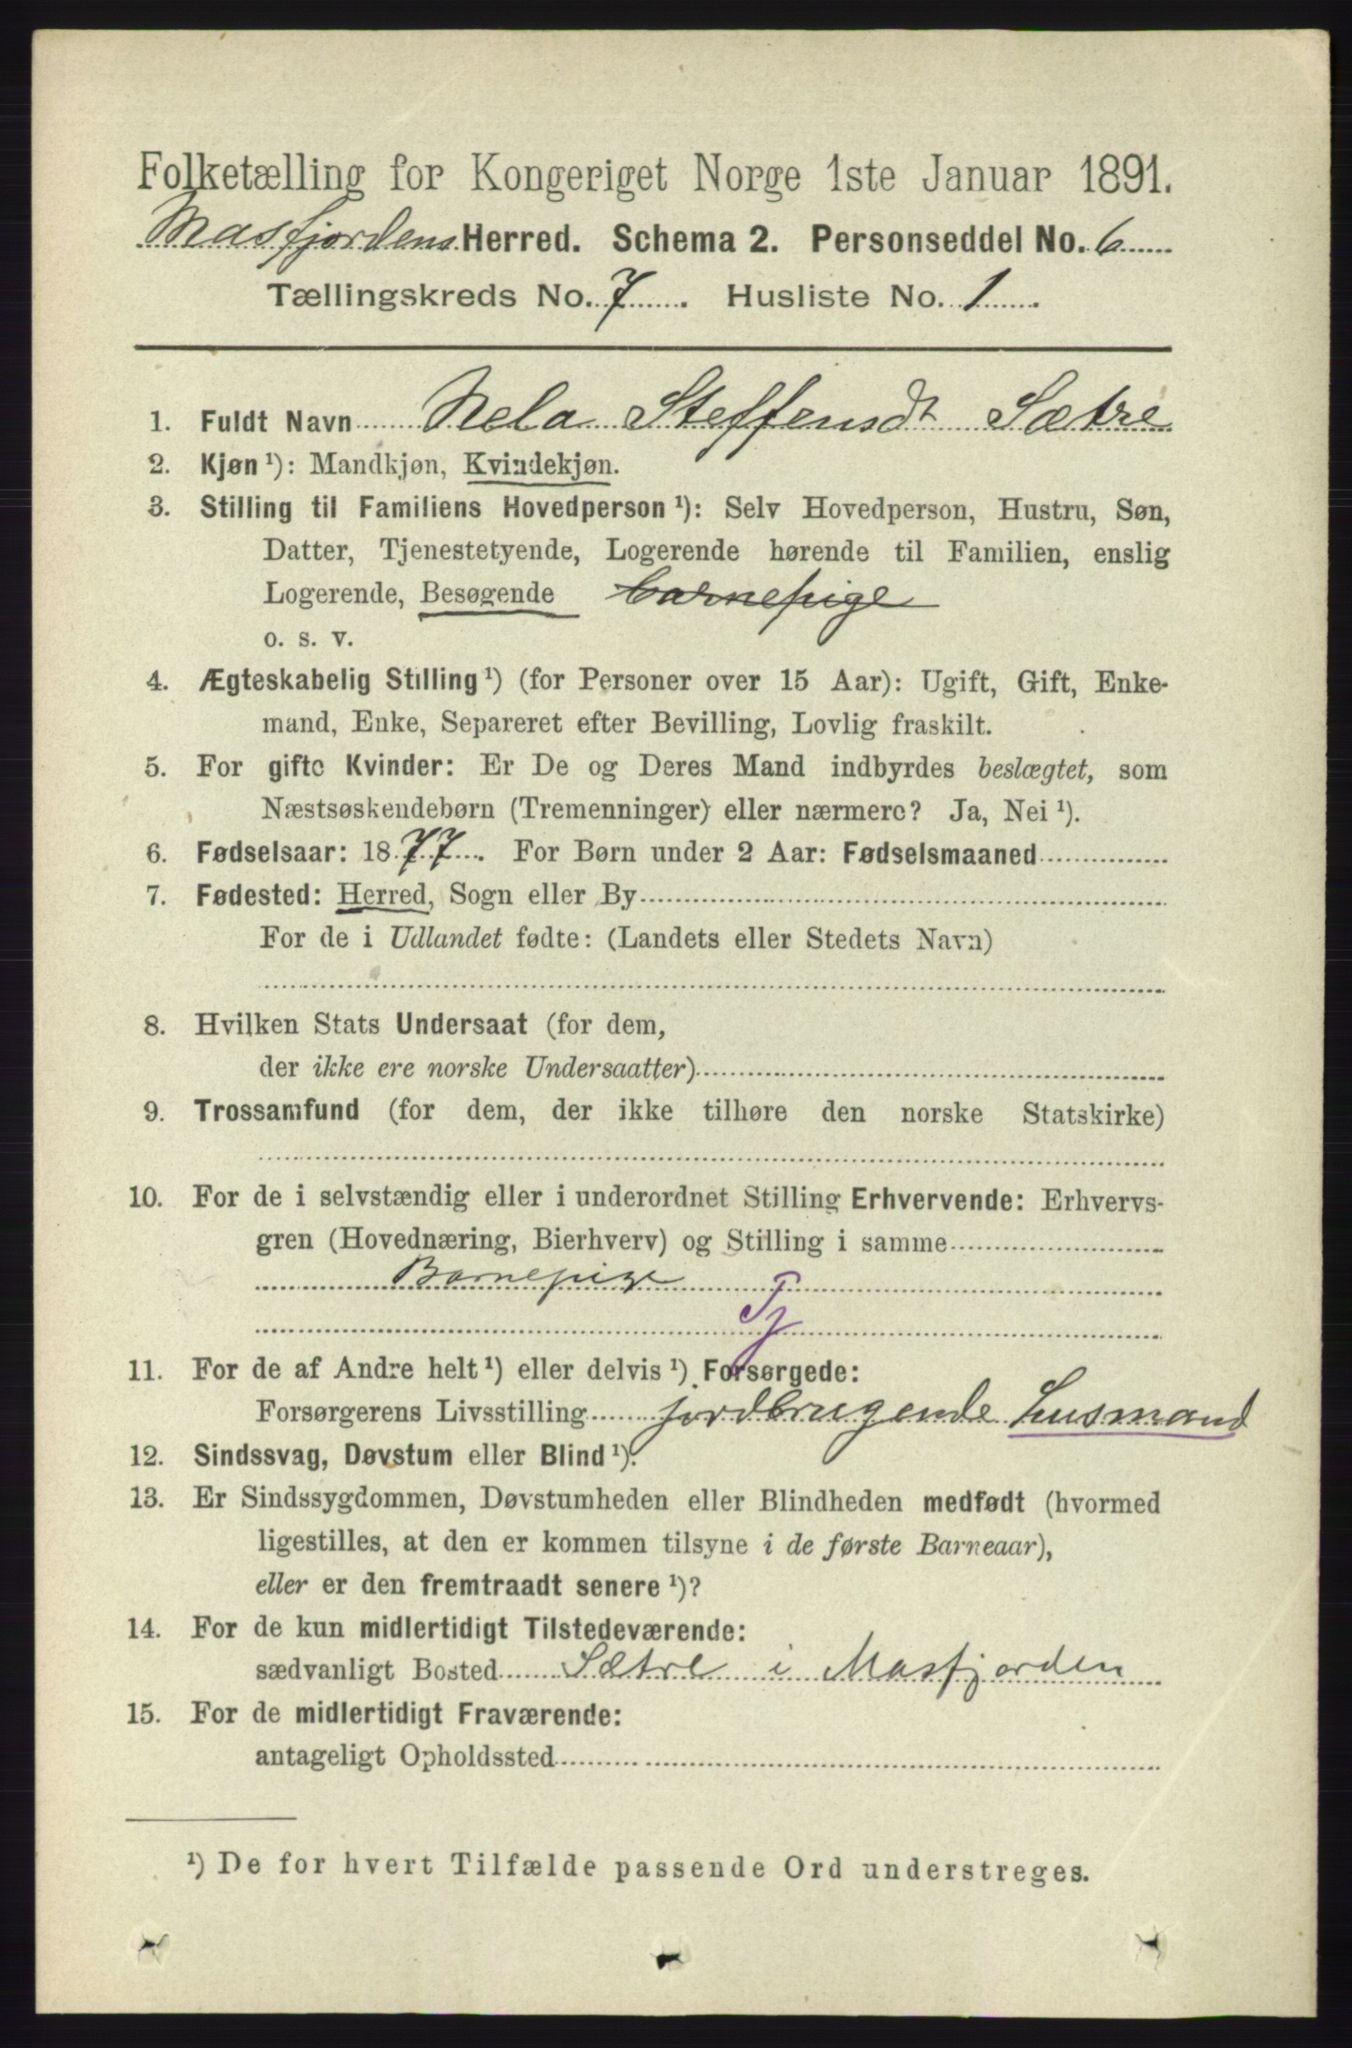 Folketælling for Kongeriget Norge 1ste Januar 1891.
Masfjordens Herred. Schema 2. Personseddel No. 6
Tællingskreds No. 7. Husliste No. 1.
1. Fuldt Navn Nela Steffensdt Sætre
2. Kjøn ¹): Mandkjøn, Kvindekjøn.
3. Stilling til Familiens Hovedperson ¹): Selv Hovedperson, Hustru, Søn,
Datter, Tjenestetyende, Logerende hørende til Familien, enslig
Logerende, Besøgende barnepige
o. s. v.
4. Ægteskabelig Stilling ¹) (for Personer over 15 Aar): Ugift, Gift, Enke-
mand, Enke, Separeret efter Bevilling, Lovlig fraskilt.
5. For gifte Kvinder: Er De og Deres Mand indbyrdes beslægtet, som
Næstsøskendebørn (Tremenninger) eller nærmere? Ja, Nei ¹).
6. Fødselsaar: 1877. For Børn under 2 Aar: Fødselsmaaned
7. Fødested: Herred, Sogn eller By
For de i Udlandet fødte: (Landets eller Stedets Navn)
8. Hvilken Stats Undersaat (for dem,
der ikke ere norske Undersaatter)
9. Trossamfund (for dem, der ikke tilhøre den norske Statskirke)
10. For de i selvstændig eller i underordnet Stilling Erhvervende: Erhvervs-
gren (Hovednæring, Bierhverv) og Stilling i samme
Barnepige
Tj
11. For de af Andre helt ¹) eller delvis ¹) Forsørgede:
Forsørgerens Livsstilling jordbrugende Husmand
12. Sindssvag, Døvstum eller Blind ¹).
13. Er Sindssygdommen, Døvstumheden eller Blindheden medfødt (hvormed
ligestilles, at den er kommen tilsyne i de første Barneaar),
eller er den fremtraadt senere ¹)?
14. For de kun midlertidigt Tilstedeværende:
sædvanligt Bosted Sætre i Masfjorden
15. For de midlertidigt Fraværende:
antageligt Opholdssted
¹) De for hvert Tilfælde passende Ord understreges.